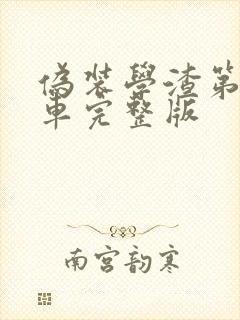 偽装學渣第
車完整版
南宮韵寒